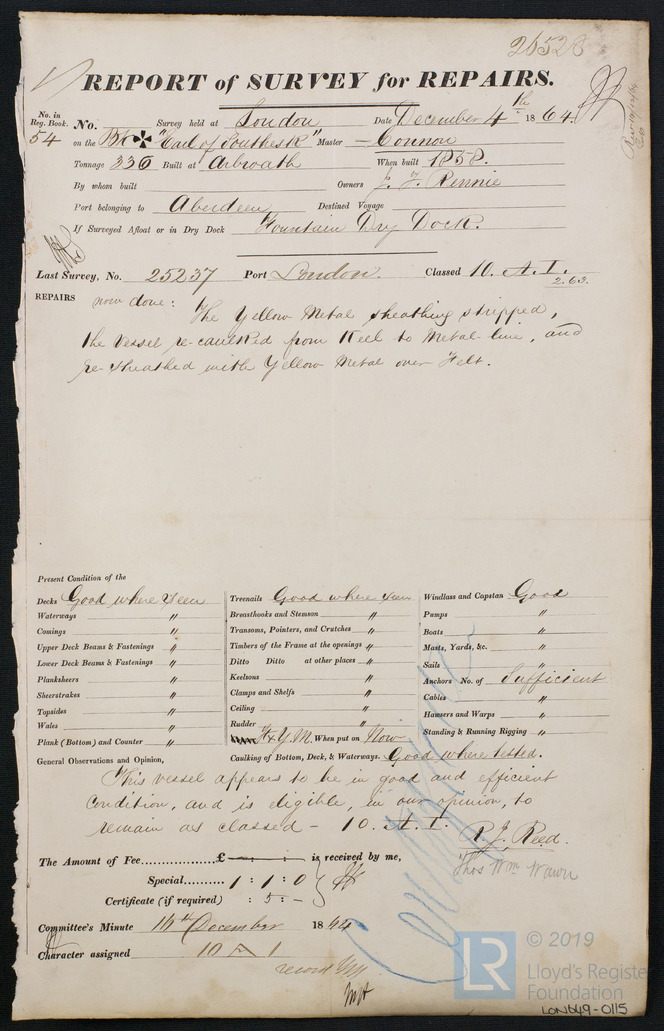 25528
REPORT of SURVEY for REPAIRS.
No. in Reg. Book. No. Survey held at London Date December 4th 1864.
54 on the Bk "Earl of Southesk" Master Connon
Tonnage 336 Built at Arbroath When built 1858.
By whom built Owners J. T. Rennie
Port belonging to Aberdeen Destined Voyage
If Surveyed Afloat or in Dry Dock Fountain Dry Dock.
Last Survey, No. 25237 Port London. Classed 10. A. I.
2.63.
REPAIRS now done: The Yellow Metal sheathing stripped,
the vessel re-caulked from Keel to Metal line, and
re-sheathed with Yellow Metal over Felt.
Present Condition of the
Decks Good where seen
Waterways "
Comings "
Upper Deck Beams & Fastenings "
Lower Deck Beams & Fastenings "
Planksheers "
Sheerstrakes "
Topsides "
Wales "
Plank (Bottom) and Counter "
Treenails Good where seen
Breasthooks and Stemson "
Transoms, Pointers, and Crutches "
Timbers of the Frame at the openings "
Ditto Ditto at other places "
Keelsons "
Clamps and Shelfs "
Ceiling "
Rudder "
F & Y.M. When put on Now
Caulking of Bottom, Deck, & Waterways. Good where tested.
Windlass and Capstan Good
Pumps "
Boats "
Masts, Yards, &c. "
Sails "
Anchors No. of Sufficient
Cables "
Hawsers and Warps "
Standing & Running Rigging "
General Observations and Opinion,
This vessel appears to be in good and efficient
condition, and is eligible, in our opinion, to
remain as classed - 10. A. I.
R. J. Reed.
Thos Wm Wawn
The Amount of Fee............... £ - : - : is received by me,
Special.......... 1 : 1 : 0
Certificate (if required) : 5 : -
Committee's Minute 16th December 1864
Character assigned 10 A 1
record
LR
© 2019
Lloyd's Register
Foundation
LON649-0115